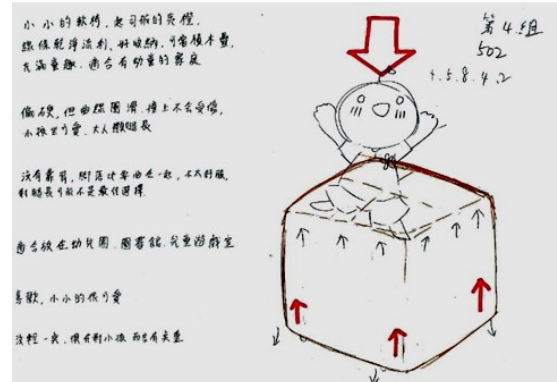 小小的軟椅,起司般的長樣
線條乾淨流利,好收納,可當積木疊,
充滿童趣,適合有幼童的家庭
偏硬,但曲線圓滑,撞上不會受傷,
小孩坐可愛,大人嫌腿長
沒有靠背,腳居中彎曲在一起,不太舒服,
對腿長可能不是最佳選擇
適合放在幼兒園、圖書館、兒童遊戲室
喜歡,小小的很可愛
沒輕一點,但對小孩
第4組
502
4.5.8.4.2